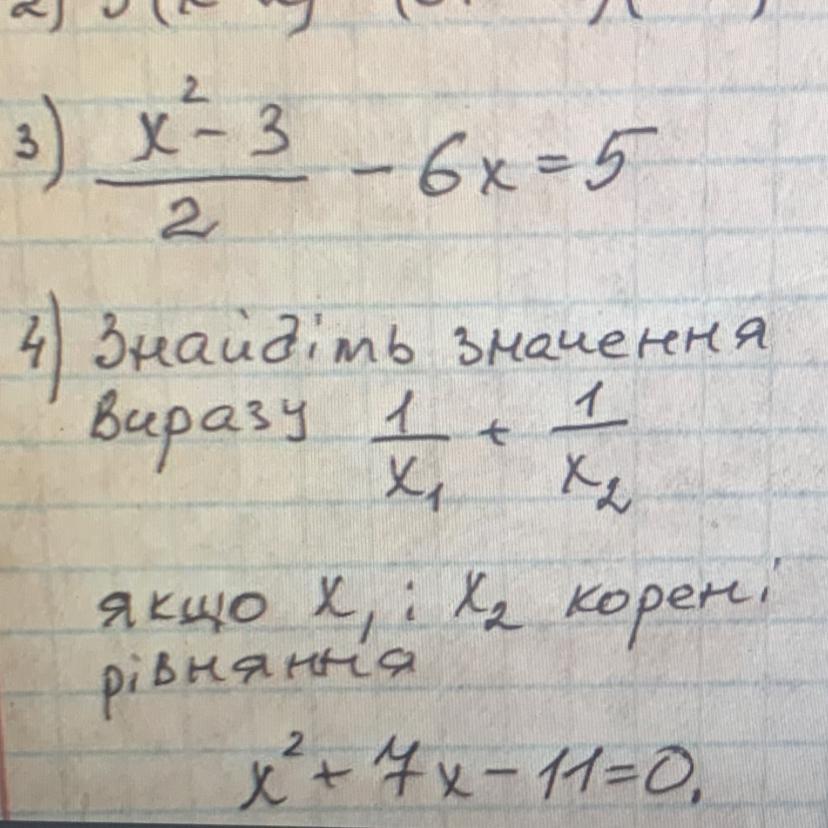 3) (x² - 3)/2 - 6x = 5
4) Знайдіть значення
виразу 1/x₁ + 1/x₂
якщо x₁ і x₂ корені
рівняння
x² + 7x - 11 = 0.